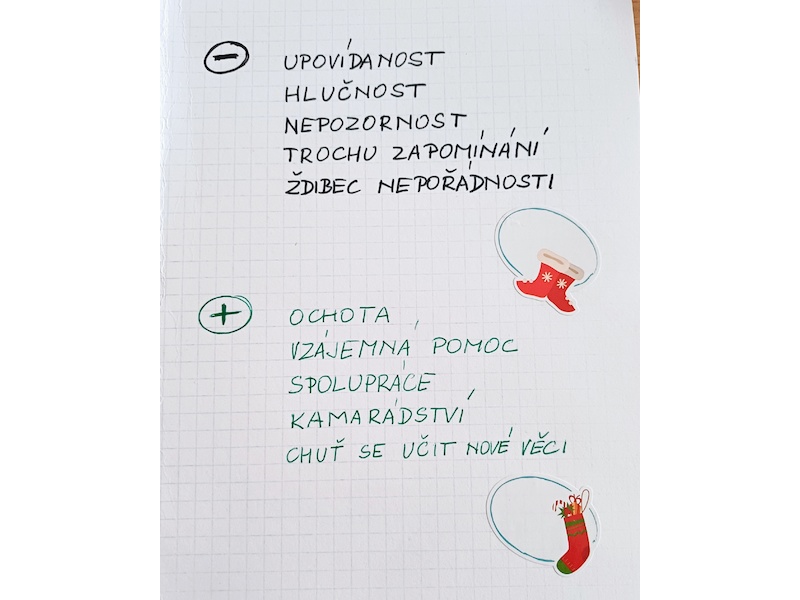 −
UPOVÍDANOST
HLUČNOST
NEPOZORNOST
TROCHU ZAPOMÍNÁNÍ
ŽDIBEC NEPOŘÁDNOSTI
+
OCHOTA
VZÁJEMNÁ POMOC
SPOLUPRÁCE
KAMARÁDSTVÍ
CHUŤ SE UČIT NOVÉ VĚCI